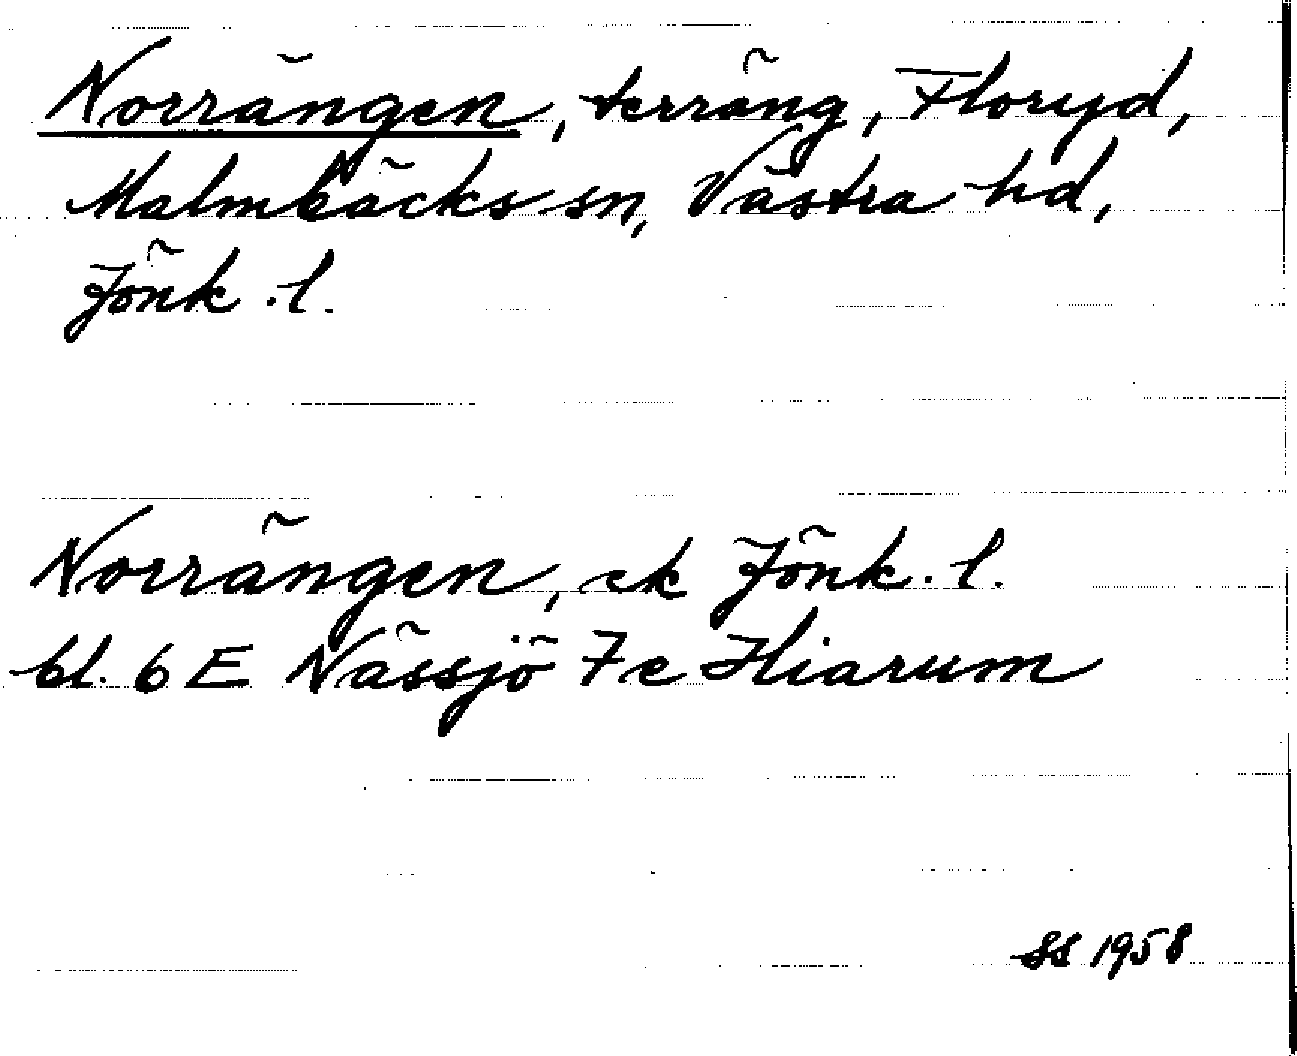 Norrängen, terräng, Floryd,
Malmbäcks sn, Västra hd,
Jönk. l.
Norrängen, ek Jönk. l.
bl. 6 E Nässjö 7e Hiarum
SS 1958